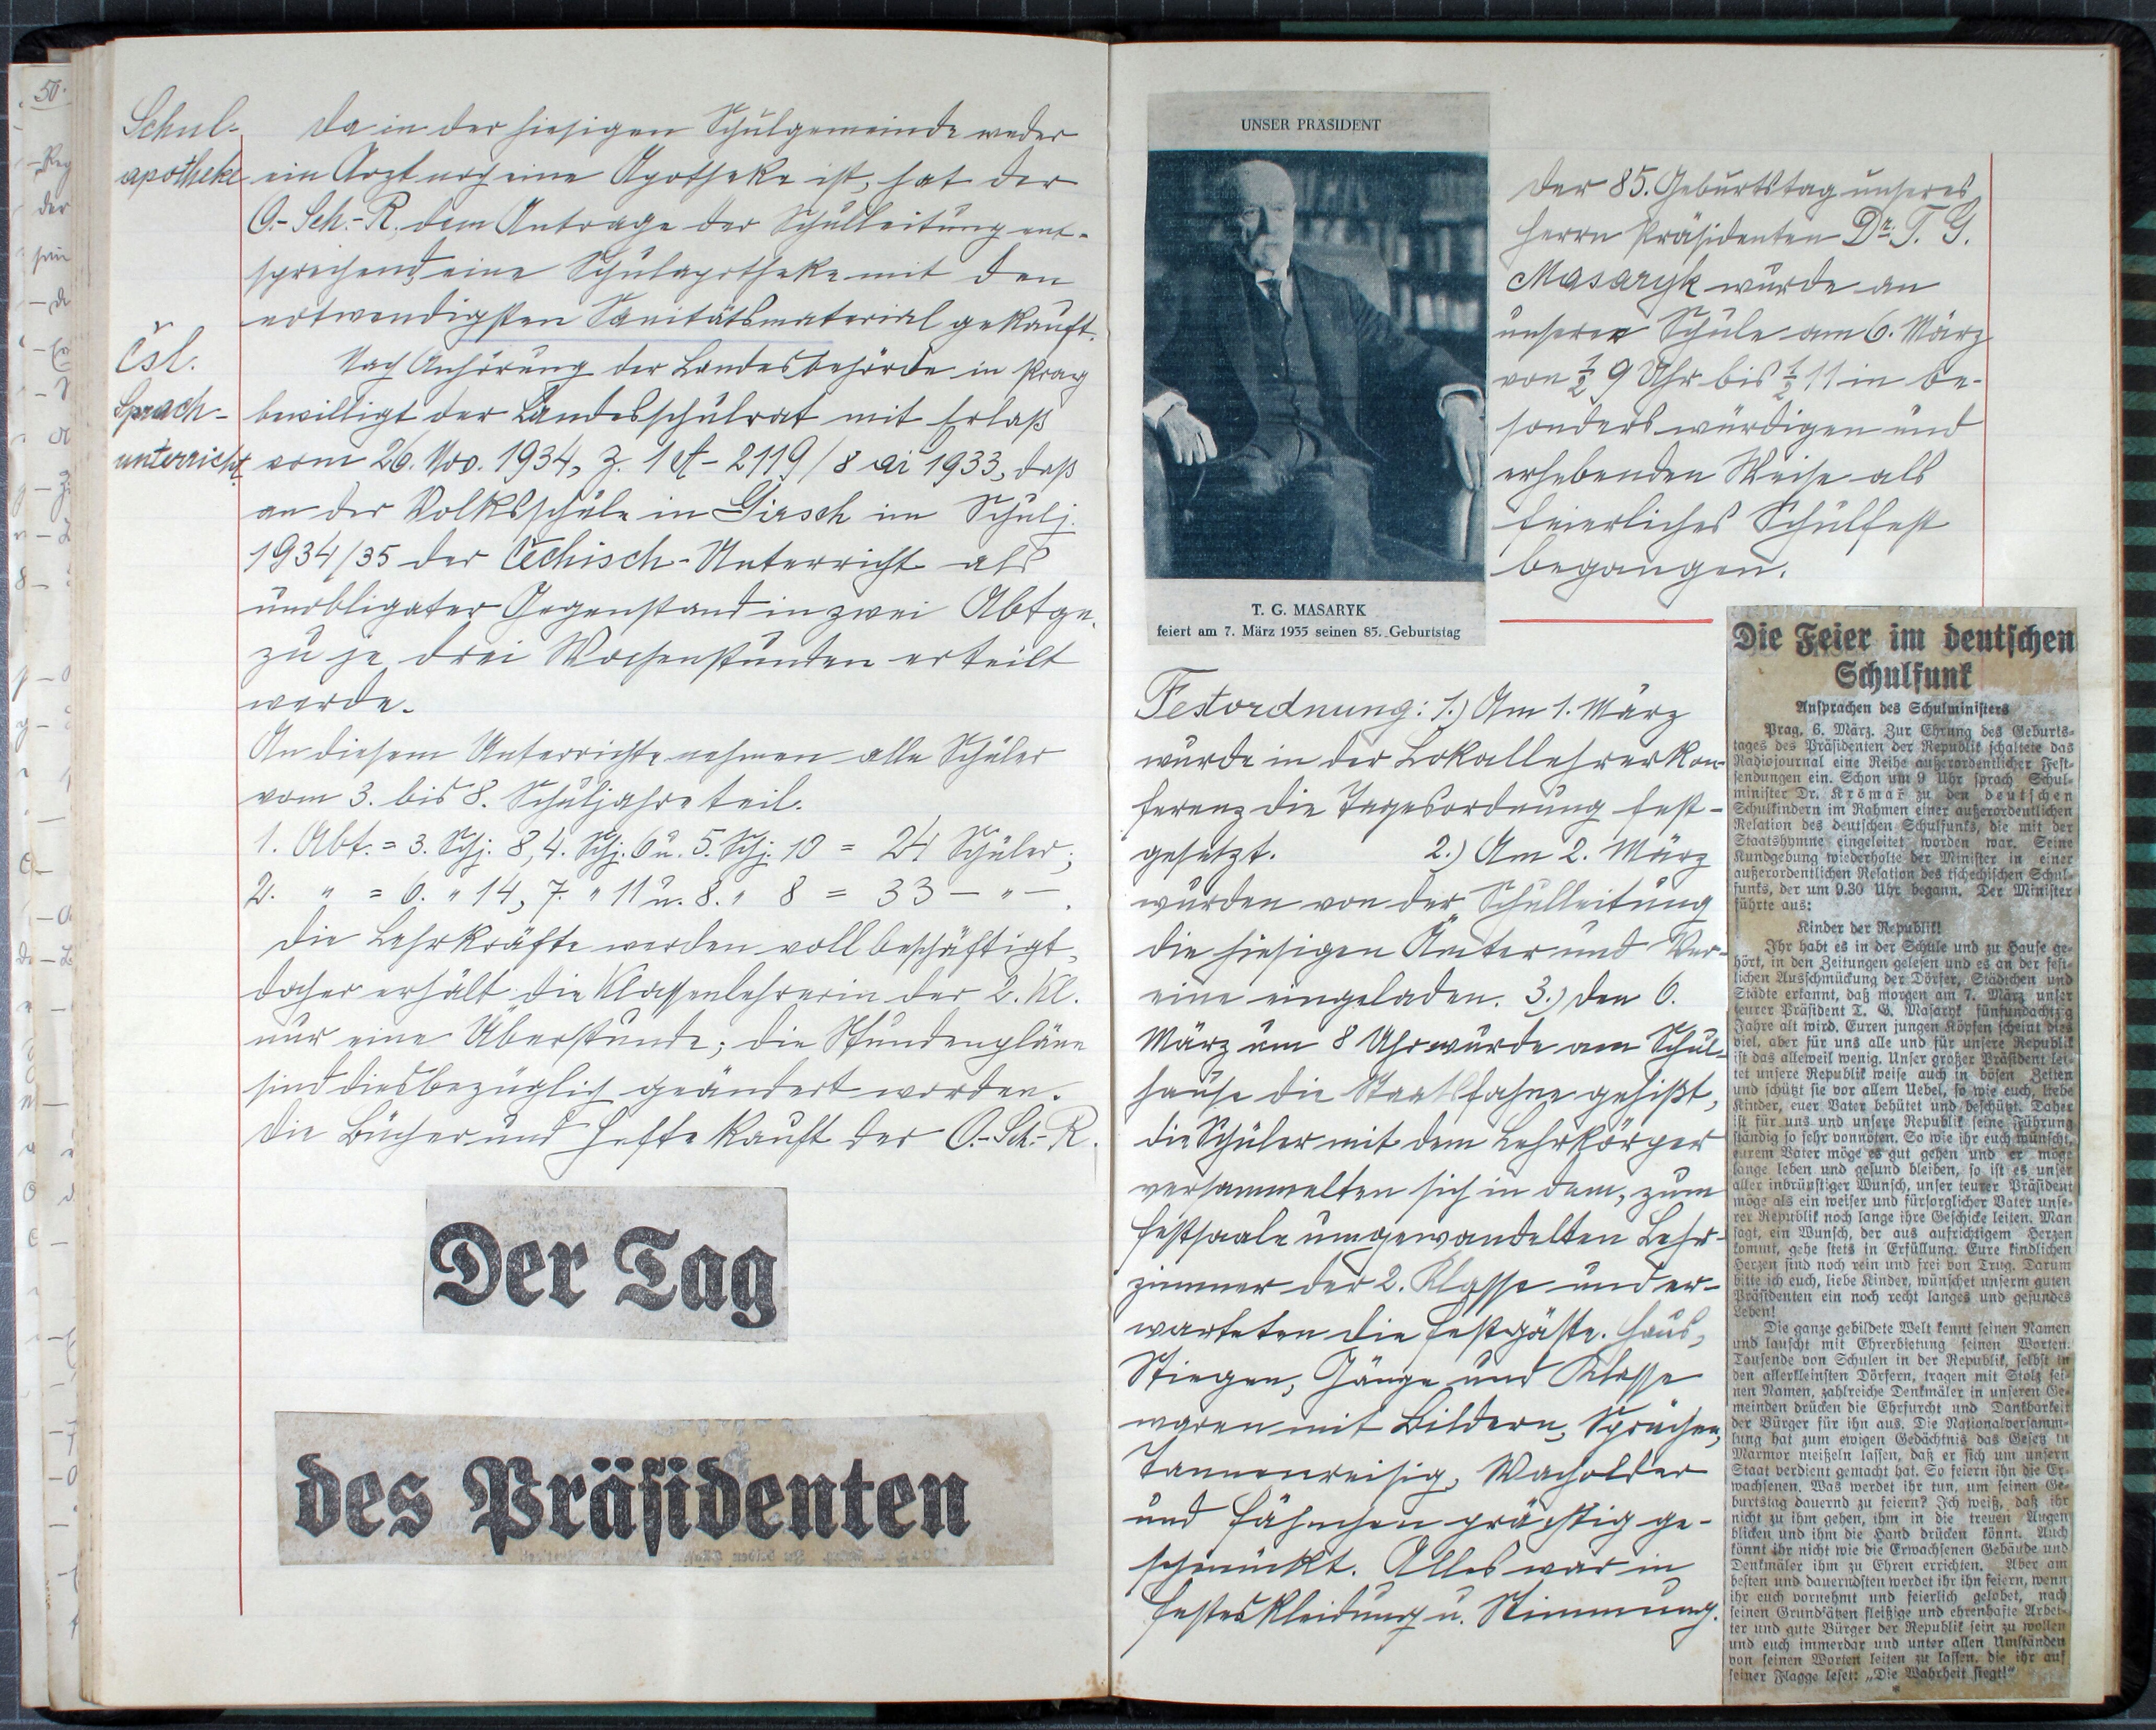 Schul-
apotheke
Da in der hiesigen Schulgemeinde weder
ein Arzt noch eine Apotheke ist, hat der
O.-Sch.-R. dem Antrage der Schulleitung ent-
sprechend eine Schulapotheke mit den
notwendigsten Sanitätsmaterial gekauft.
Čsl.
Sprach-
unterricht.
Nach Anhörung der Landesbehörde in Prag
bewilligt der Landesschulrat mit Erlaß
vom 26. Nov. 1934, Z. 1 A - 2119/8 ai 1933, daß
an der Volksschule in Girsch im Schulj.
1934/35 der Čechisch-Unterricht als
unobligater Gegenstand in zwei Abtge.
zu je drei Wochenstunden erteilt
werde.
An diesem Unterrichte nehmen alle Schüler
vom 3. bis 8. Schuljahre teil.
1. Abt. = 3. Schj. 8, 4. Schj. 6 u. 5. Schj. 10 = 24 Schüler;
2. " = 6. " 14, 7. " 11 u. 8. " 8 = 33 — " —.
Die Lehrkräfte werden voll beschäftigt,
daher erhält die Klassenlehrerin der 2. Kl.
nur eine Überstunde; die Stundenpläne
sind diesbezüglich geändert worden.
Die Bücher und Hefte kauft der O.-Sch.-R.
Der Tag
des Präsidenten
UNSER PRÄSIDENT
T. G. MASARYK
feiert am 7. März 1935 seinen 85. Geburtstag
Der 85. Geburtstag unseres
Herrn Präsidenten Dr. T. G.
Masaryk wurde an
unserer Schule am 6. März
von ½ 9 Uhr bis ½ 11 in be-
sonders würdigen und
erhebenden Weise als
feierliches Schulfest
begangen.
Festordnung: 1.) Am 1. März
wurde in der Lokallehrerkon-
ferenz die Tagesordnung fest-
gesetzt. 2.) Am 2. März
wurden von der Schulleitung
die hiesigen Ämter und Ver-
eine eingeladen. 3.) Den 6.
März um 8 Uhr wurde am Schul-
hause die Staatsfahne gehißt,
die Schüler mit dem Lehrkörper
versammelten sich in dem, zum
Festsaale umgewandelten Lehr-
zimmer der 2. Klasse und er-
warteten die Festgäste. Haus,
Stiegen, Gänge und Klasse
waren mit Bildern, Sprüchen,
Tannenreisig, Wacholder
und Fähnchen prächtig ge-
schmückt. Alles war in
Festeskleidung u. Stimmung.
Die Feier im deutschen
Schulfunk
Ansprachen des Schulministers
Prag, 6. März. Zur Ehrung des Geburts-
tages des Präsidenten der Republik schaltete das
Radiojournal eine Reihe außerordentlicher Fest-
sendungen ein. Schon um 9 Uhr sprach Schul-
minister Dr. Krčmař zu den deutschen
Schulkindern im Rahmen einer außerordentlichen
Relation des deutschen Schulfunks, die mit der
Staatshymne eingeleitet worden war. Seine
Kundgebung wiederholte der Minister in einer
außerordentlichen Relation des tschechischen Schul-
funks, der um 9.30 Uhr begann. Der Minister
führte aus:
Kinder der Republik!
Ihr habt es in der Schule und zu Hause ge-
hört, in den Zeitungen gelesen und es an der fest-
lichen Ausschmückung der Dörfer, Städtchen und
Städte erkannt, daß morgen am 7. März unser
teurer Präsident T. G. Masaryk fünfundachtzig
Jahre alt wird. Euren jungen Köpfen scheint dies
viel, aber für uns alle und für unsere Republik
ist das alleweil wenig. Unser großer Präsident lei-
tet unsere Republik weise auch in bösen Zeiten
und schützt sie vor allem Uebel, so wie euch, liebe
Kinder, euer Vater behütet und beschützt. Daher
ist für uns und unsere Republik seine Führung
ständig so sehr vonnöten. So wie ihr euch wünscht,
eurem Vater möge es gut gehen und er möge
lange leben und gesund bleiben, so ist es unser
aller inbrünstiger Wunsch, unser teurer Präsident
möge als ein weiser und fürsorglicher Vater unse-
rer Republik noch lange ihre Geschicke leiten. Man
sagt, ein Wunsch, der aus aufrichtigem Herzen
kommt, gehe stets in Erfüllung. Eure kindlichen
Herzen sind noch rein und frei von Trug. Darum
bitte ich euch, liebe Kinder, wünschet unserm guten
Präsidenten ein noch recht langes und gesundes
Leben!
Die ganze gebildete Welt kennt seinen Namen
und lauscht mit Ehrerbietung seinen Worten.
Tausende von Schulen in der Republik, selbst in
den allerkleinsten Dörfern, tragen mit Stolz sei-
nen Namen, zahlreiche Denkmäler in unseren Ge-
meinden drücken die Ehrfurcht und Dankbarkeit
der Bürger für ihn aus. Die Nationalversamm-
lung hat zum ewigen Gedächtnis das Gesetz in
Marmor meißeln lassen, daß er sich um unsern
Staat verdient gemacht hat. So feiern ihn die Er-
wachsenen. Was werdet ihr tun, um seinen Ge-
burtstag dauernd zu feiern? Ich weiß, daß ihr
nicht zu ihm gehen, ihm in die treuen Augen
blicken und ihm die Hand drücken könnt. Auch
könnt ihr nicht wie die Erwachsenen Gebäude und
Denkmäler ihm zu Ehren errichten. Aber am
besten und dauerndsten werdet ihr ihn feiern, wenn
ihr euch vornehmt und feierlich gelobet, nach
seinen Grundsätzen fleißige und ehrenhafte Arbei-
ter und gute Bürger der Republik sein zu wollen
und euch immerdar und unter allen Umständen
von seinen Worten leiten zu lassen, die ihr auf
seiner Flagge leset: „Die Wahrheit siegt!“